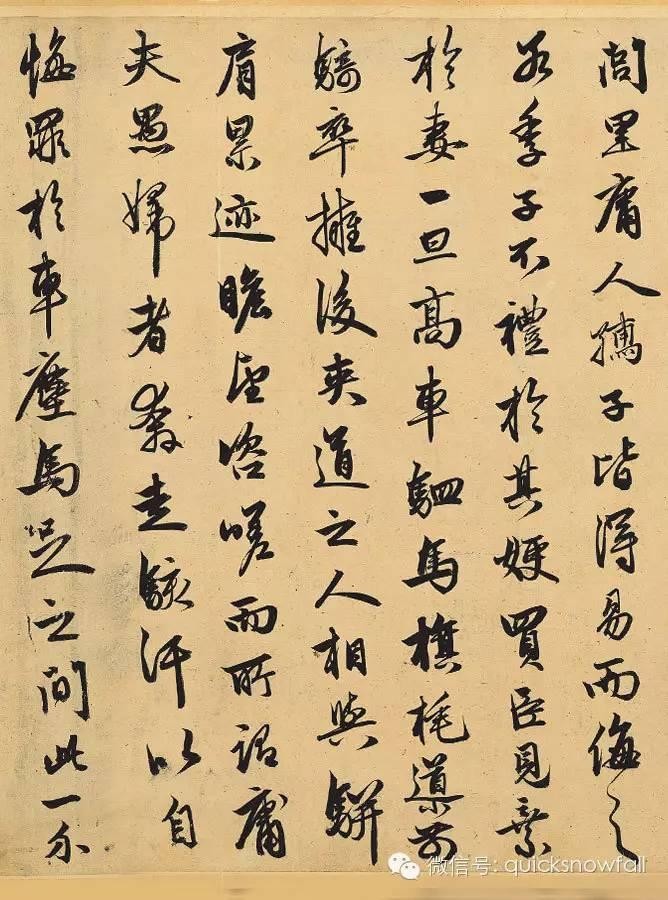 閭里庸人孺子皆得易而侮之
若季子不禮於其嫂買臣見棄
於妻一旦高車駟馬旗旄導前
騎卒擁後夾道之人相與駢
肩累迹瞻望咨嗟而所謂庸
夫愚婦者奔走駭汗以自
悔罪於車塵馬足之間此一介
微信号: quicksnowfall